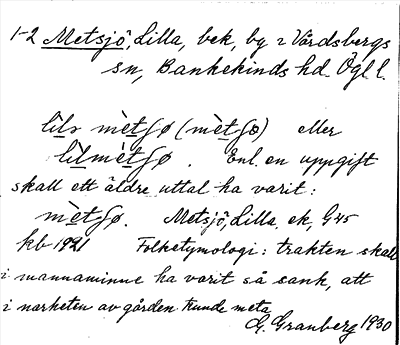 1-2 Metsjö, Lilla, bek, by i Vårdsbergs
sn, Bankekinds hd. Ögl l.
lìlr mètʃø (mètʃø) eller
lìlmètʃø. Enl. en uppgift
skall ett äldre uttal ha varit:
mètʃø. Metsjö, Lilla, ek, G45
kb 1921 Folketymologi: trakten skall
i mannaminne ha varit så sank, att
i närheten av gården kunde meta
G. Granberg 1930